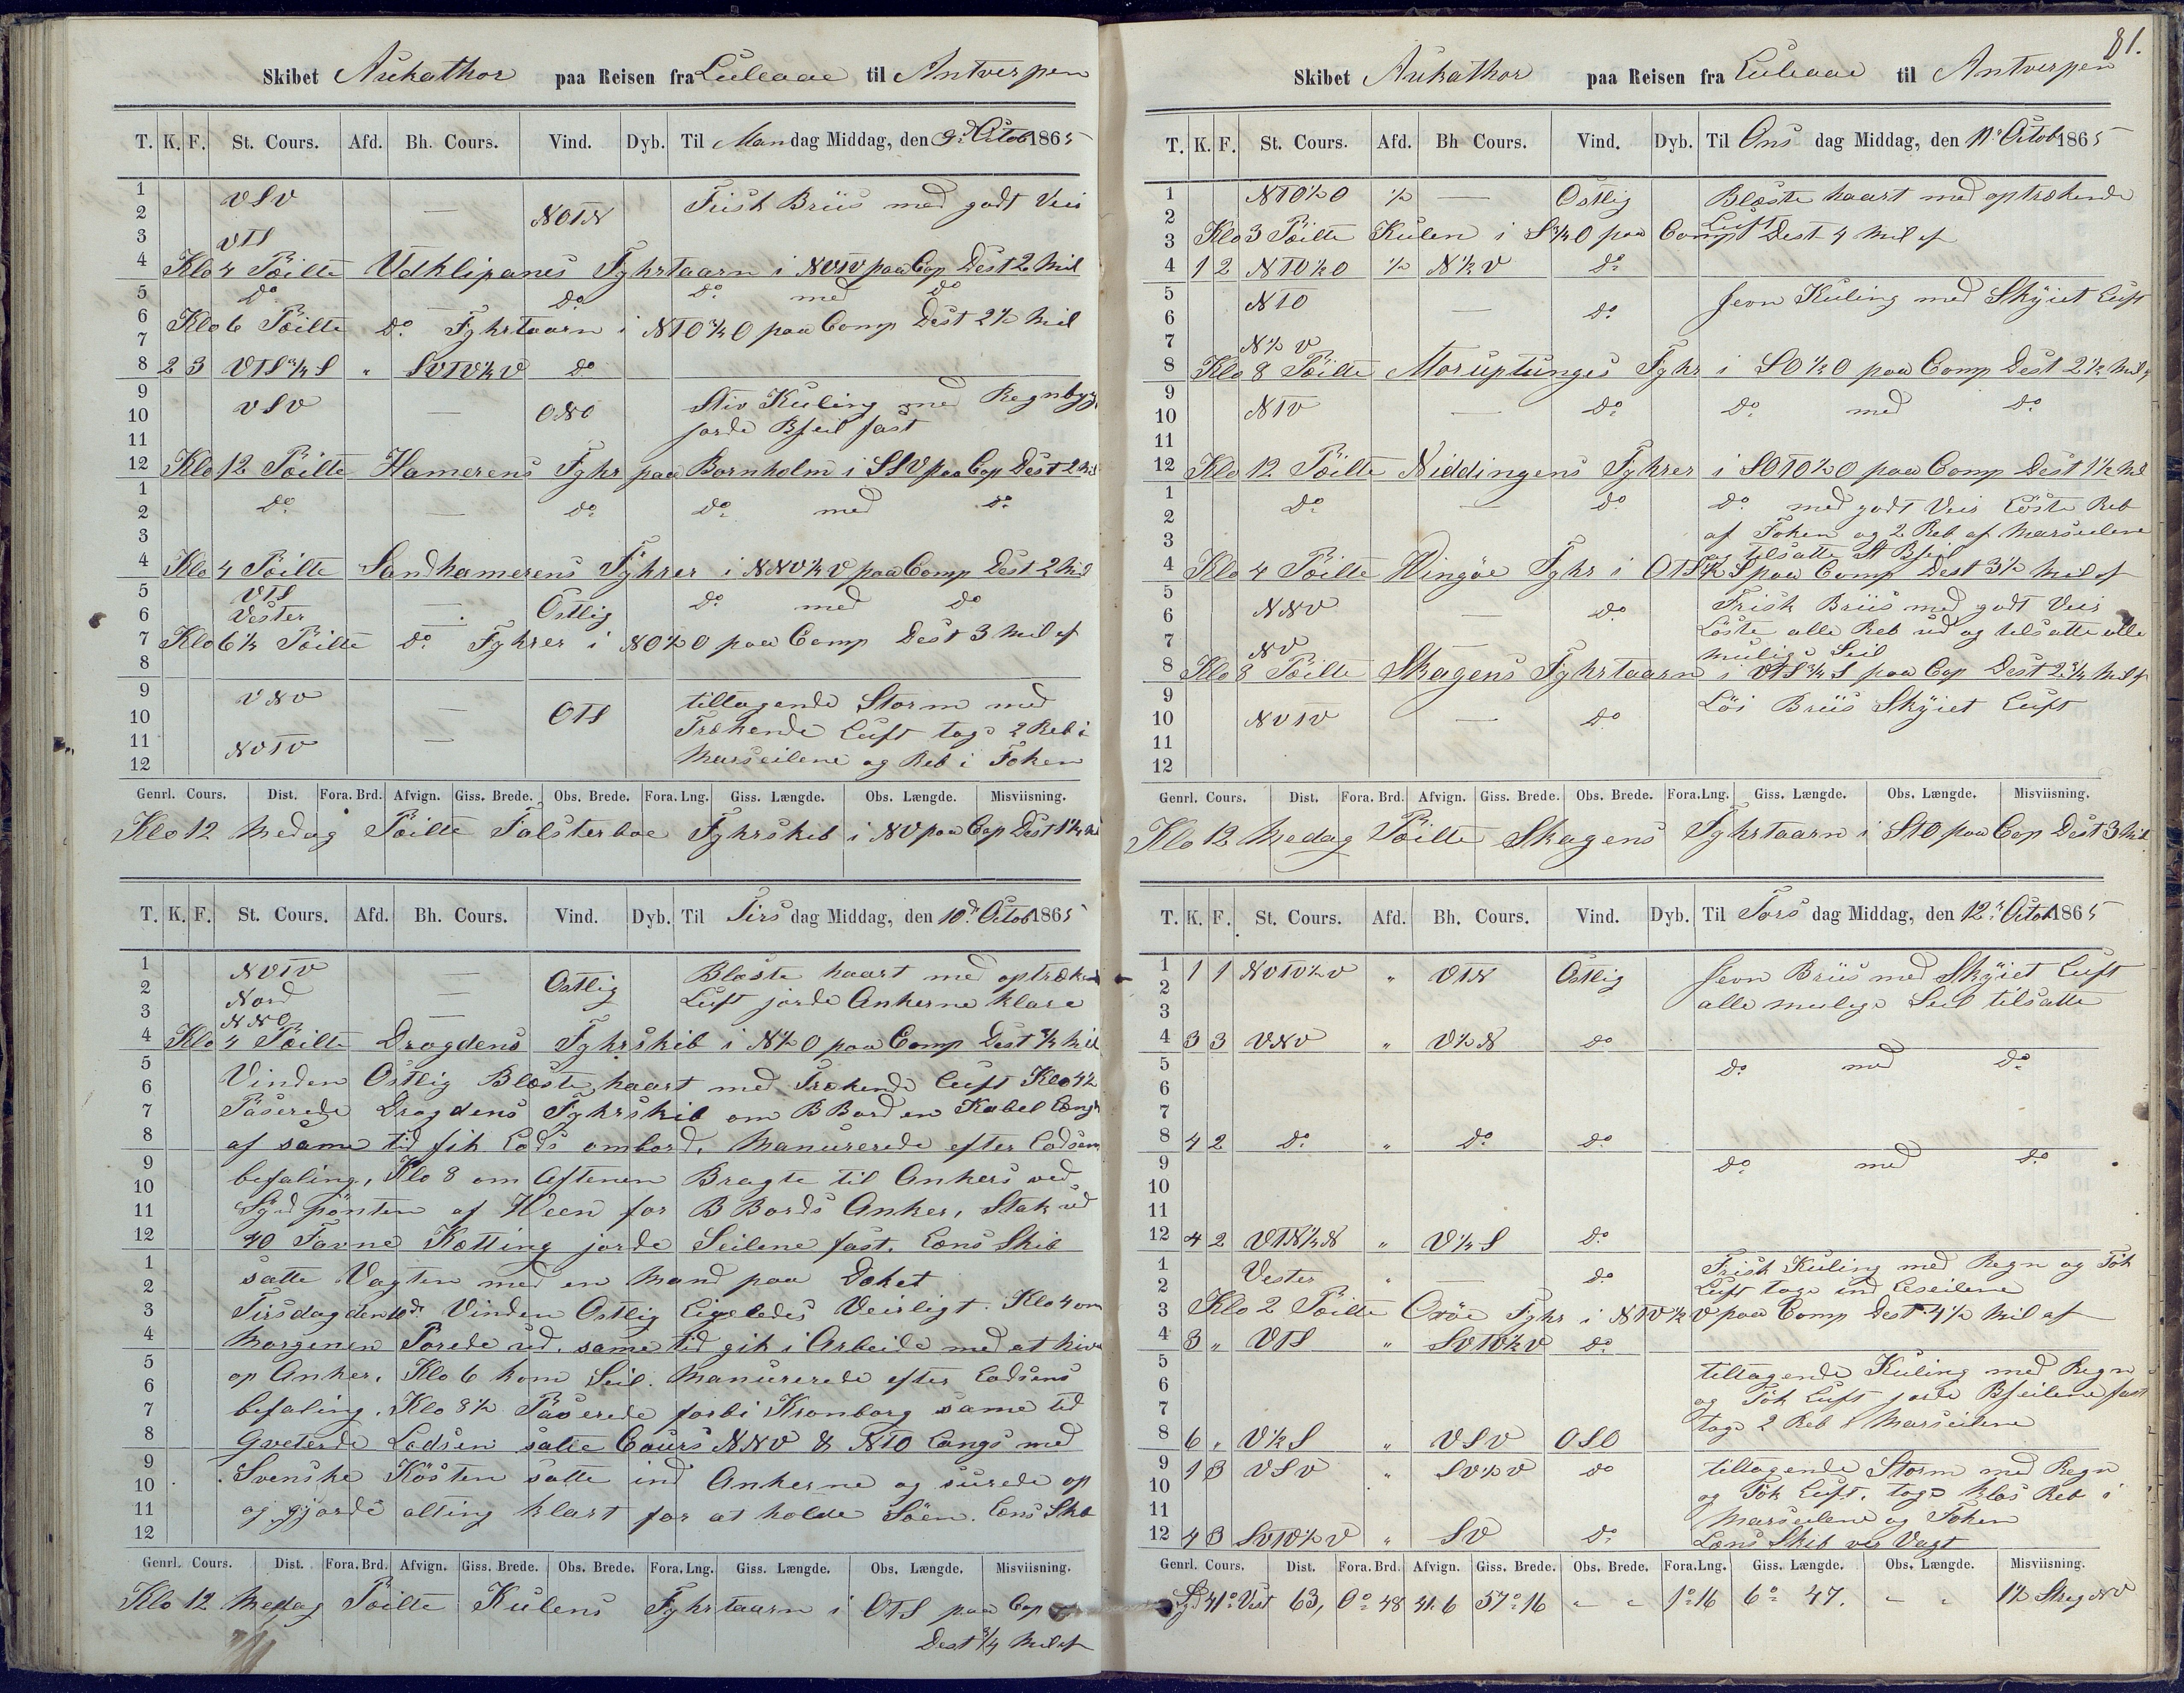 Skibet Aukathor paa Reisen fra Luleaae til Antverpen
T. K. F. St. Cours. Afd. Bh. Cours. Vind. Dyb. Til Mandag Middag, den 9d Octob 1865
1 VSV — Frisk Briis med godt Veir
2 NOTN
3 VTS
4 Klo 4 Pæilte Udklipanes Fyhrtaarn i NVTV paa Cop Dest 2 Mil
5 do do do med do
6 Klo 6 Pæilte do Fyhrtaarn i NTO¾O paa Comp Dest 2½ Mil
7
8 2 3 VTS¾S „ SVTV½V do
9 VSV — ONO Stiv Kuling med Regnbyg
10 jorde Bseil fast
11
12 Klo 12 Pæilte Hamerens Fyhr paa Bornholm i SSV paa Cop Dest 2 Mil
1 do — do do med do
2
3
4 Klo 4 Pæilte Sandhamerens Fyhrer i NNV½V paa Comp Dest 2 Mil
5 VTS do med do
6 Vester — Östlig
7 Klo 6½ Pæilte do Fyhrer i NO½O paa Comp Dest 3 Mil af
8
9 VNV tiltagende Storm med
10 — OTS Trækende Luft togs 2 Reb i
11 NVTV — Marseilene og Reb i Foken
12
Genrl. Cours. Dist. Fora. Brd. Afvign. Giss. Brede. Obs. Brede. Fora. Lng. Giss. Længde. Obs. Længde. Misviisning.
Klo 12 Medag Pæilte Falsterboe Fyhrskib i NV paa Cop Dest 1¼ Mil
T. K. F. St. Cours. Afd. Bh. Cours. Vind. Dyb. Til Tirsdag Middag, den 10d Octob 1865
1 NVTV — Blæste haart med optræk
2 Nord — Östlig Luft jorde Ankerne klare
3 NNO —
4 Klo 4 Pæilte Dragdens Fyhrskib i N½O paa Comp Dest ¾ Mil
5 Vinden Östlig Blæste haart med Trækende Luft Klo 4½
6
7 Paserede Dragdens Fyhrskib om BBord en Kabel Længe
8 af same tid fik Lods ombord, Manurerede efter Lodsens
9 befaling, Klo 8 om Aftenen Bragte til Ankers ved
10
11 Sydpönten af Ween for BBords Anker, Stak ud
12 40 Favne Kætting jorde Seilene fast. Læns Skib
1 satte Vagten med en Mand paa Dæket
2
3 Tirsdag den 10d Vinden Östlig Ligeledes Veirligt. Klo 4 om
4 Morgenen Porede ud. same tid gik i Arbeide med at hive
5 op Anker, Klo 6 kom Seil. Manurerede efter Lodsens
6
7 befaling. Klo 8½ Paserede forbi Kronborg same tid
8 qveterde Lodsen satte Cours NNV & NTO Langs med
9 Svenske Kösten satte ind Ankerne og surede op
10
11 og gjorde alting klart for at holde Söen. Læns Skb
12
Genrl. Cours. Dist. Fora. Brd. Afvign. Giss. Brede. Obs. Brede. Fora. Lng. Giss. Længde. Obs. Længde. Misviisning.
Klo 12 Medag Pæilte Kulens Fyhrtaarn i OTS paa Cop
Dest ¾ Mil af
81.
Skibet Aukathor paa Reisen fra Luleaae til Antverpen
T. K. F. St. Cours. Afd. Bh Cours. Vind. Dyb. Til Onsdag Middag, den 11d Octob 1865
1 NTO½O ½ — Östlig Blæste haart med optrækende
2 Luft
3 Klo 3 Pæilte Kulen i S¾O paa Comp Dest 4 Mil af
4 1 2 NTO½O ½ N½V do
5 NTO — do Jevn Kuling med Skÿiet Luft
6
7 N½V
8 Klo 8 Pæilte Moruptunges Fyhr i SO½O paa Comp Dest 2½ Mil
9
10 NTV — do do med do
11
12 Klo 12 Pæilte Niddingens Fyhrer i SOTO½O paa Comp Dest 1½ Mil
1 do — do do med godt Veir Löste Reb
2
3 af Foken og 2 Reb af Marseilene
og tilsatte St Bseil
4 Klo 4 Pæilte Wingöe Fyhr i OTS½S paa Comp Dest 3½ Mil af
5
6 NNV — do Frisk Briis med godt Veir
Löste alle Reb ud og telsatte alle
7 NV mulige Seil
8 Klo 8 Pæilte Skagens Fyhrtaarn i VTS¾S paa Cop Dest 2¾ Mil af
9 Löi Briis Skÿiet Luft
10 NVTV — do
11
12
Genrl. Cours. Dist. Fora. Brd. Afvign. Giss. Brede. Obs. Brede. Fora.Lng. Giss. Længde. Obs. Længde. Misviisning.
Klo 12 Medag Pæilte Skagens Fyhrtaarn i STO paa Cop Dest 3 Mil
T. K. F. St. Cours. Afd. Bh. Cours. Vind. Dyb. Til Torsdag Middag, den 12d Octob 1865
1 1 1 NVTV½V „ VTN Östlig Jevn Briis med Skÿiet Luft
2 alle mulige Seil tilsatte
3
4 3 3 VNV „ V½N do
5 do med do
6
7
8 4 2 do „ do do
9 do med do
10
11
12 4 2 VTN¼N „ V¼S do
1 Vester „ — do Frisk Kuling med Regn og Tök
2 Luft togs ind Leseilene
3 Klo 2 Pæilte Oxöe Fyhr i NTV½V paa Comp Dest 4½ Mil af
4 3 „ VTS „ SVTV½V do
5 tiltagende Kuling med Regn
6 og Tök Luft jorde Bseilene fast
7 togs 2 Reb i Marseilene
8 6 „ V½S „ VSV OSO
9 1 3 VSV „ SV½V do tiltagende Storm med Regn
10 og Tök Luft. togs Klos Reb i
11 Marseilene og Foken
12 4 3 SVTV½V „ SV do Læns Skib ved Vagt
Genrl. Cours. Dist. Fora. Brd. Afvign. Giss. Brede. Obs. Brede. Fora.Lng. Giss. Længde. Obs. Længde. Misviisning.
Syd 41° Vest 63, 0° 48 41.6 57° 16 „ „ 1° 16 6° 47. „ „ 1½ Streg NV